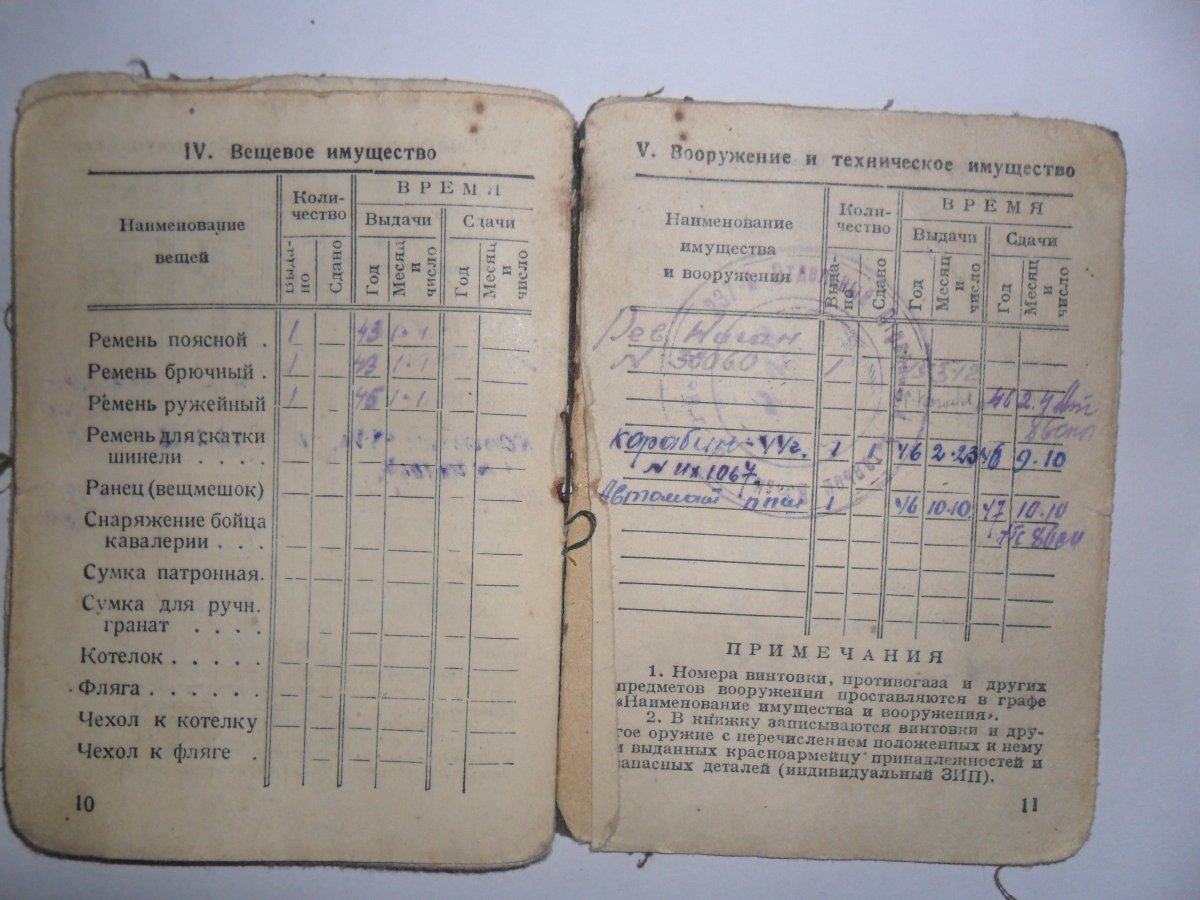 IV. Вещевое имущество
Наименование
вещей
Коли-
чество
ВРЕМЯ
Выдачи
Сдачи
Выда-
но
Сдано
Год
Месяц
и
число
Год
Месяц
и
число
Ремень поясной . 1 43 1·1
Ремень брючный . 1 43 1·1
Ремень ружейный 1 45 1·1
Ремень для скатки
шинели . . . .
Ранец (вещмешок)
Снаряжение бойца
кавалерии . . .
Сумка патронная.
Сумка для ручн.
гранат . . . .
Котелок . . . . .
Фляга . . . . . .
Чехол к котелку
Чехол к фляге .
10
V. Вооружение и техническое имущество
Наименование
имущества
и вооружения
Коли-
чество
ВРЕМЯ
Выдачи
Сдачи
Выда-
но
Сдано
Год
Месяц
и
число
Год
Месяц
и
число
Рев. Наган
N 1
46 2.4
карабин 44г. 1 1 46 2·23 46 9·10
N 1067
Автомат ппш 1 46 10.10 47 10.10
ПРИМЕЧАНИЯ
1. Номера винтовки, противогаза и других
предметов вооружения проставляются в графе
«Наименование имущества и вооружения».
2. В книжку записываются винтовки и дру-
гое оружие с перечислением положенных к нему
и выданных красноармейцу принадлежностей и
запасных деталей (индивидуальный ЗИП).
11